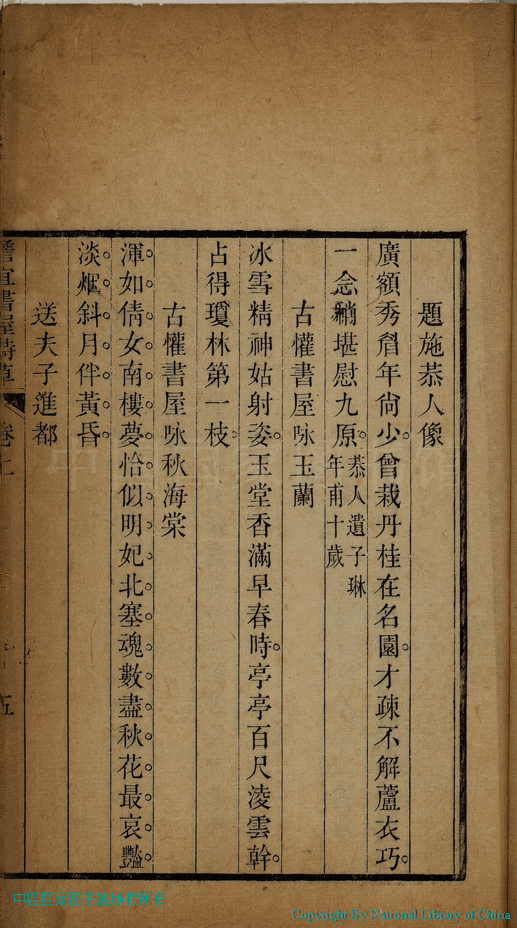 題施恭人像
廣額秀眉年尙少曾栽丹桂在名園才疎不解蘆衣巧
一念稍堪慰九原恭人遺子琳年甫十歲
古懽書屋咏玉蘭
冰雪精神姑射姿玉堂香滿早春時亭亭百尺淩雲幹
占得瓊林第一枝
古懽書屋咏秋海棠
渾如倩女南樓夢恰似明妃北塞魂數盡秋花最哀豔
淡烟斜月伴黃昏
送夫子進都
宜書屋詩草
卷上
五
Copyright By National Library of China